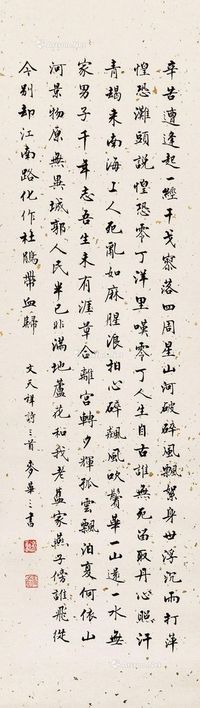 辛苦遭逢起一經干戈寥落四周星山河破碎風飄絮身世浮沉雨打萍
惶恐灘頭說惶恐零丁洋里嘆零丁人生自古誰無死留取丹心照汗
青朅來南海上人死亂如麻腥浪拍心碎飆風吹鬢華一山還一水無
家男子千年志吾生未有涯草合離宮轉夕輝孤雲飄泊复何依山
河景物原無異城郭人民半已非滿地蘆花和我老舊家燕子傍誰飛從
今別却江南路化作杜鵑帶血歸
文天祥詩三首 麥華三書